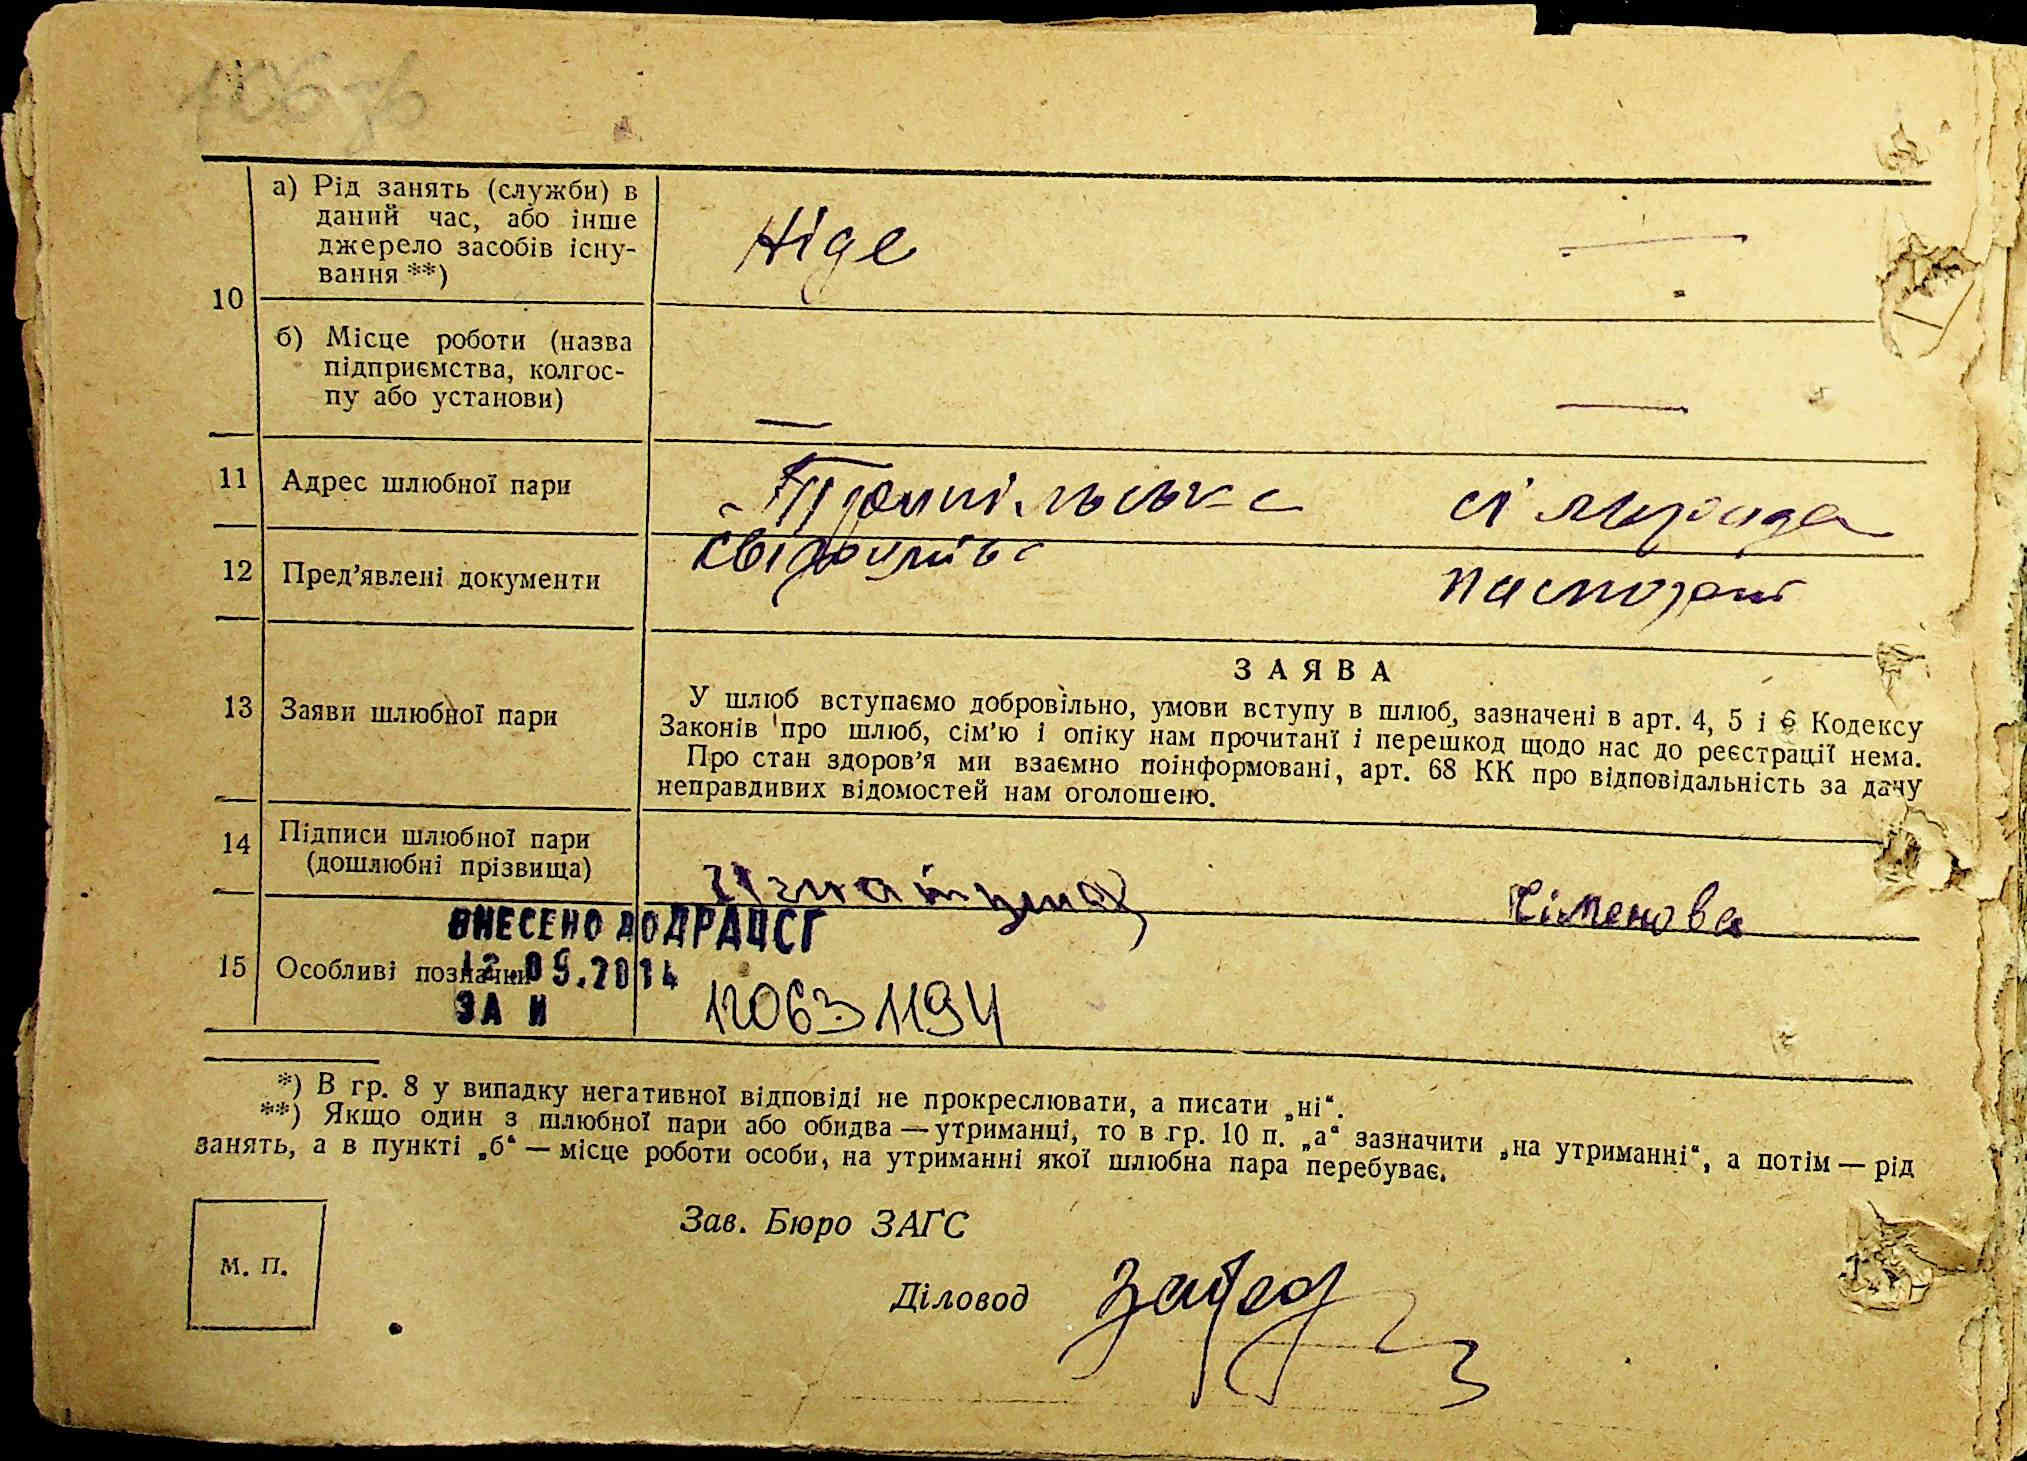 а) Рід занять (служби) в
даний час, або інше
джерело засобів існу-
вання **)
Ніде —
10
б) Місце роботи (назва
підприємства, колгос-
пу або установи)
— —
11 Адрес шлюбної пари
12 Пред'явлені документи
паспорт
ЗАЯВА
13 Заяви шлюбної пари
У шлюб вступаємо добровільно, умови вступу в шлюб, зазначені в арт. 4, 5 і 6 Кодексу
Законів про шлюб, сім'ю і опіку нам прочитані і перешкод щодо нас до реєстрації нема.
Про стан здоров'я ми взаємно поінформовані, арт. 68 КК про відповідальність за дачу
неправдивих відомостей нам оголошено.
14 Підписи шлюбної пари
(дошлюбні прізвища)
Сіменова
ВНЕСЕНО ДО ДРАЦСГ
15 Особливі позначки
12.09.2014
ЗА N 12063 1194
*) В гр. 8 у випадку негативної відповіді не прокреслювати, а писати „ні“.
**) Якщо один з шлюбної пари або обидва — утриманці, то в гр. 10 п. „а“ зазначити „на утриманні“, а потім — рід
занять, а в пункті „б“ — місце роботи особи, на утриманні якої шлюбна пара перебуває.
Зав. Бюро ЗАГС
М. П.
Діловод